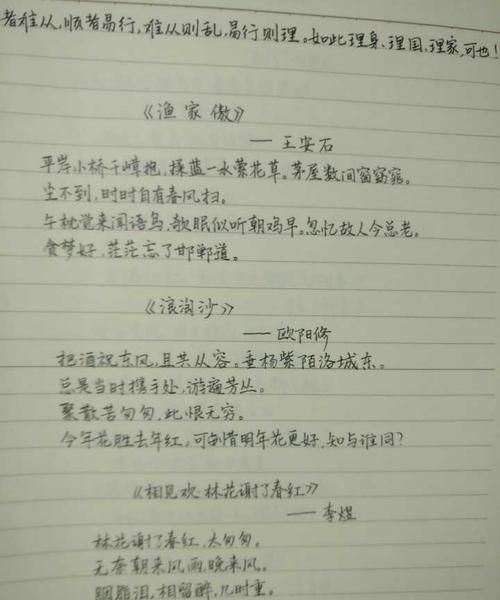 者难从,顺者易行,难从则乱,易行则理。如此理身、理国、理家,可也!
《渔家傲》
——王安石
平岸小桥千嶂抱,揉蓝一水萦花草。茅屋数间窗窈窕。
尘不到,时时自有春风扫。
午枕觉来闻语鸟,欹眠似听朝鸡早。忽忆故人今总老。
贪梦好,茫茫忘了邯郸道。
《浪淘沙》
——欧阳修
把酒祝东风,且共从容。垂杨紫陌洛城东。
总是当时携手处,游遍芳丛。
聚散苦匆匆,此恨无穷。
今年花胜去年红,可惜明年花更好,知与谁同?
《相见欢·林花谢了春红》
——李煜
林花谢了春红,太匆匆。
无奈朝来风雨,晚来风。
胭脂泪,相留醉,几时重。